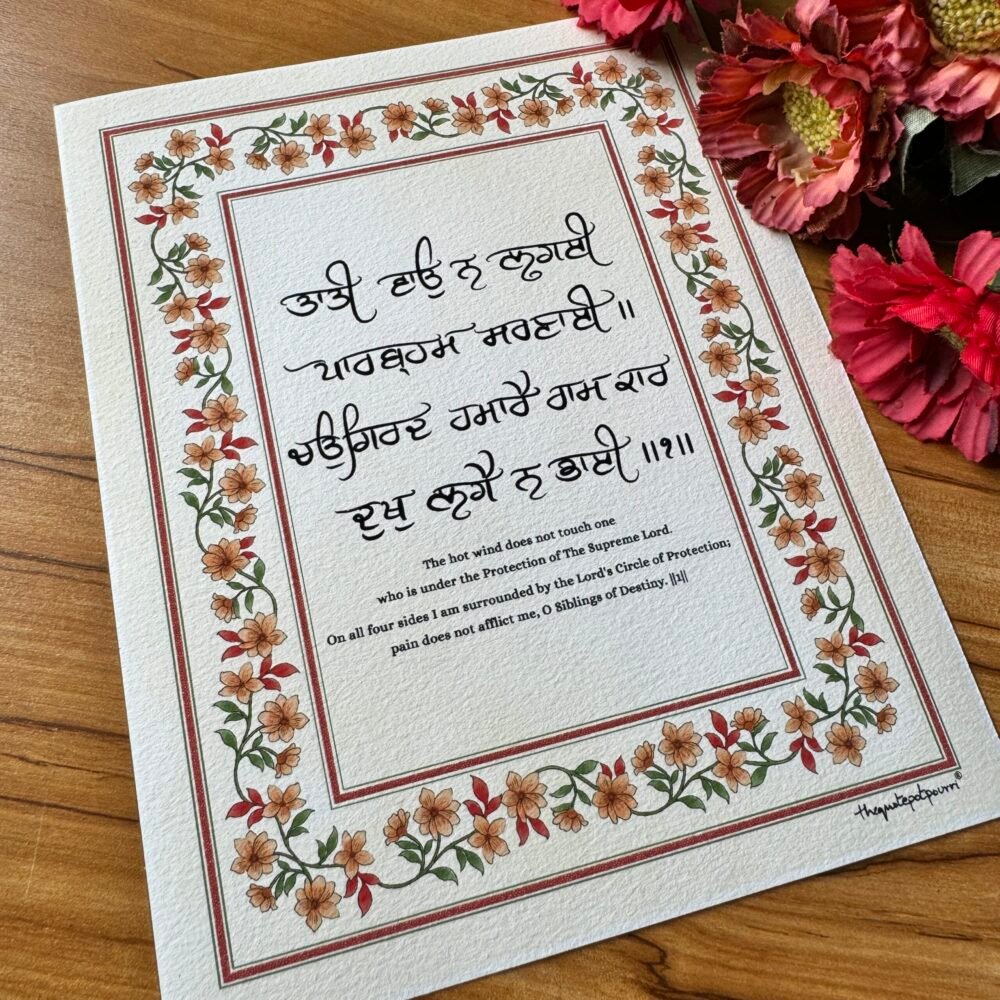 ਤਾਤੀ ਵਾਉ ਨ ਲਗਈ
ਪਾਰਬ੍ਰਹਮ ਸਰਣਾਈ ॥
ਚਉਗਿਰਦ ਹਮਾਰੈ ਰਾਮ ਕਾਰ
ਦੁਖੁ ਲਗੈ ਨ ਭਾਈ ॥੧॥
The hot wind does not touch one
who is under the Protection of The Supreme Lord.
On all four sides I am surrounded by the Lord's Circle of Protection;
pain does not afflict me, O Siblings of Destiny. ||1||
thequotepotpourri®